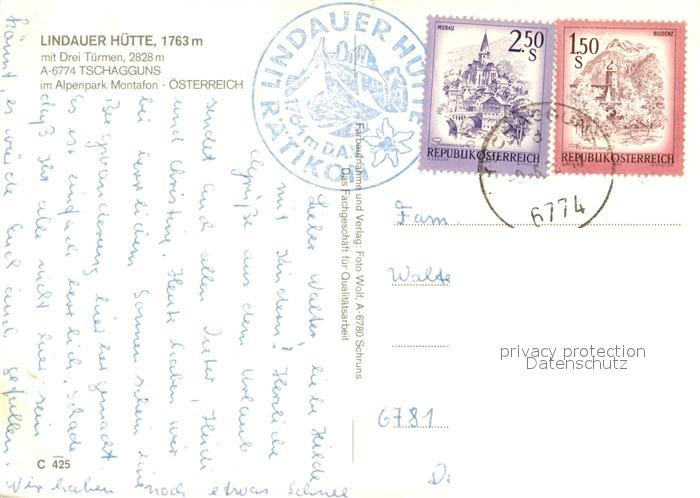 LINDAUER HÜTTE, 1763 m
mit Drei Türmen, 2828 m
A-6774 TSCHAGGUNS
im Alpenpark Montafon - ÖSTERREICH
LINDAUER HÜTTE
1764m
RÄTIKON
MURAU
2.50 S
REPUBLIK ÖSTERREICH
BLUDENZ
1.50 S
REPUBLIK ÖSTERREICH
TSCHAGGUNS
6774
Farbaufnahme und Verlag: Foto Wolf, A-6780 Schruns
Das Fachgeschäft für Qualitätsarbeit
Lieber Walter, liebe Hilde
mit Kindern! Herzliche
Grüße aus dem Urlaub
sendet Euch allen Dieter, Heidi
und Christina. Heute haben wir
bei herrlichem Sonnenschein eine
Bergwanderung hier her gemacht.
Es ist einfach herrlich. Schade
daß Ihr alle nicht hier sein
könnt, es würde Euch auch gefallen.
Wir haben noch etwas Schnee
Fam.
Walte
6781
C 425
privacy protection
Datenschutz